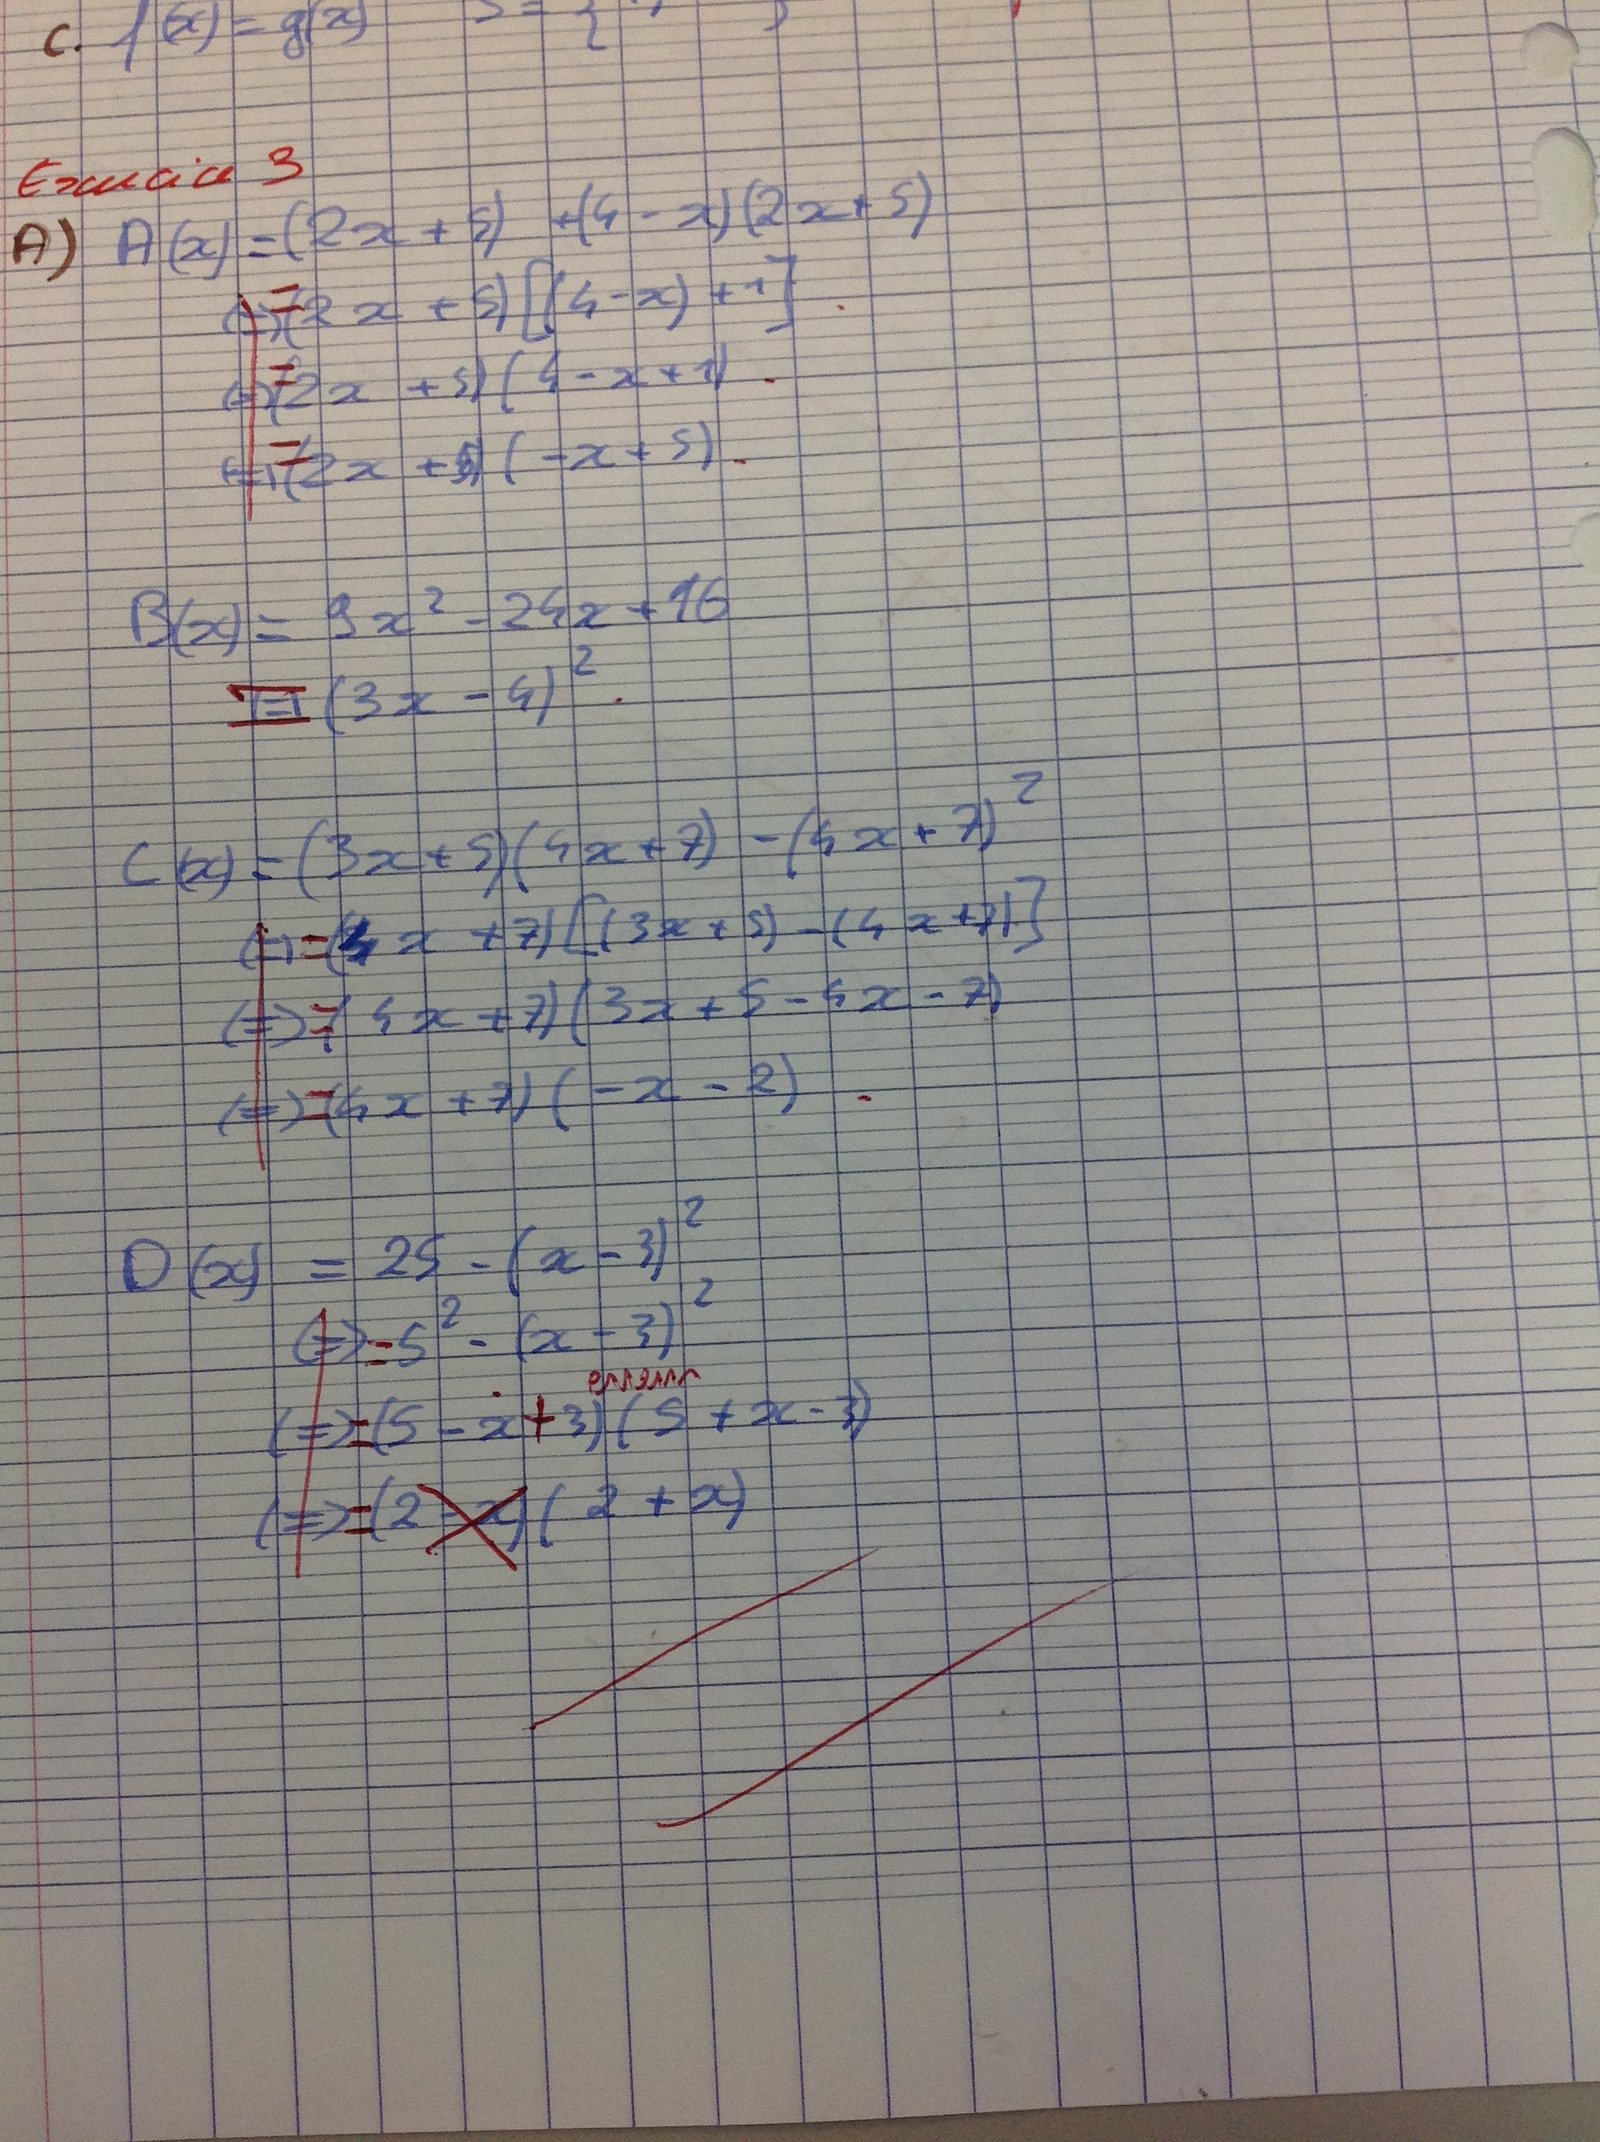 C. f(x) = g(x) S = {
Exercice 3
A) A(x) = (2x + 5) + (4 - x)(2x + 5)
(=) = (2x + 5) [(4 - x) + 1]
(=) = (2x + 5) (4 - x + 1)
(=) = (2x + 5) (-x + 5)
B(x) = 9x² - 24x + 16
(=) = (3x - 4)²
C(x) = (3x + 5)(4x + 7) - (4x + 7)²
(=) = (4x + 7) [(3x + 5) - (4x + 7)]
(=) = (4x + 7) (3x + 5 - 4x - 7)
(=) = (4x + 7) (-x - 2)
D(x) = 25 - (x - 3)²
(=) = 5² - (x - 3)²
erreur
(=) = (5 - x + 3) (5 + x - 3)
(=) = (2 - x) (2 + x)